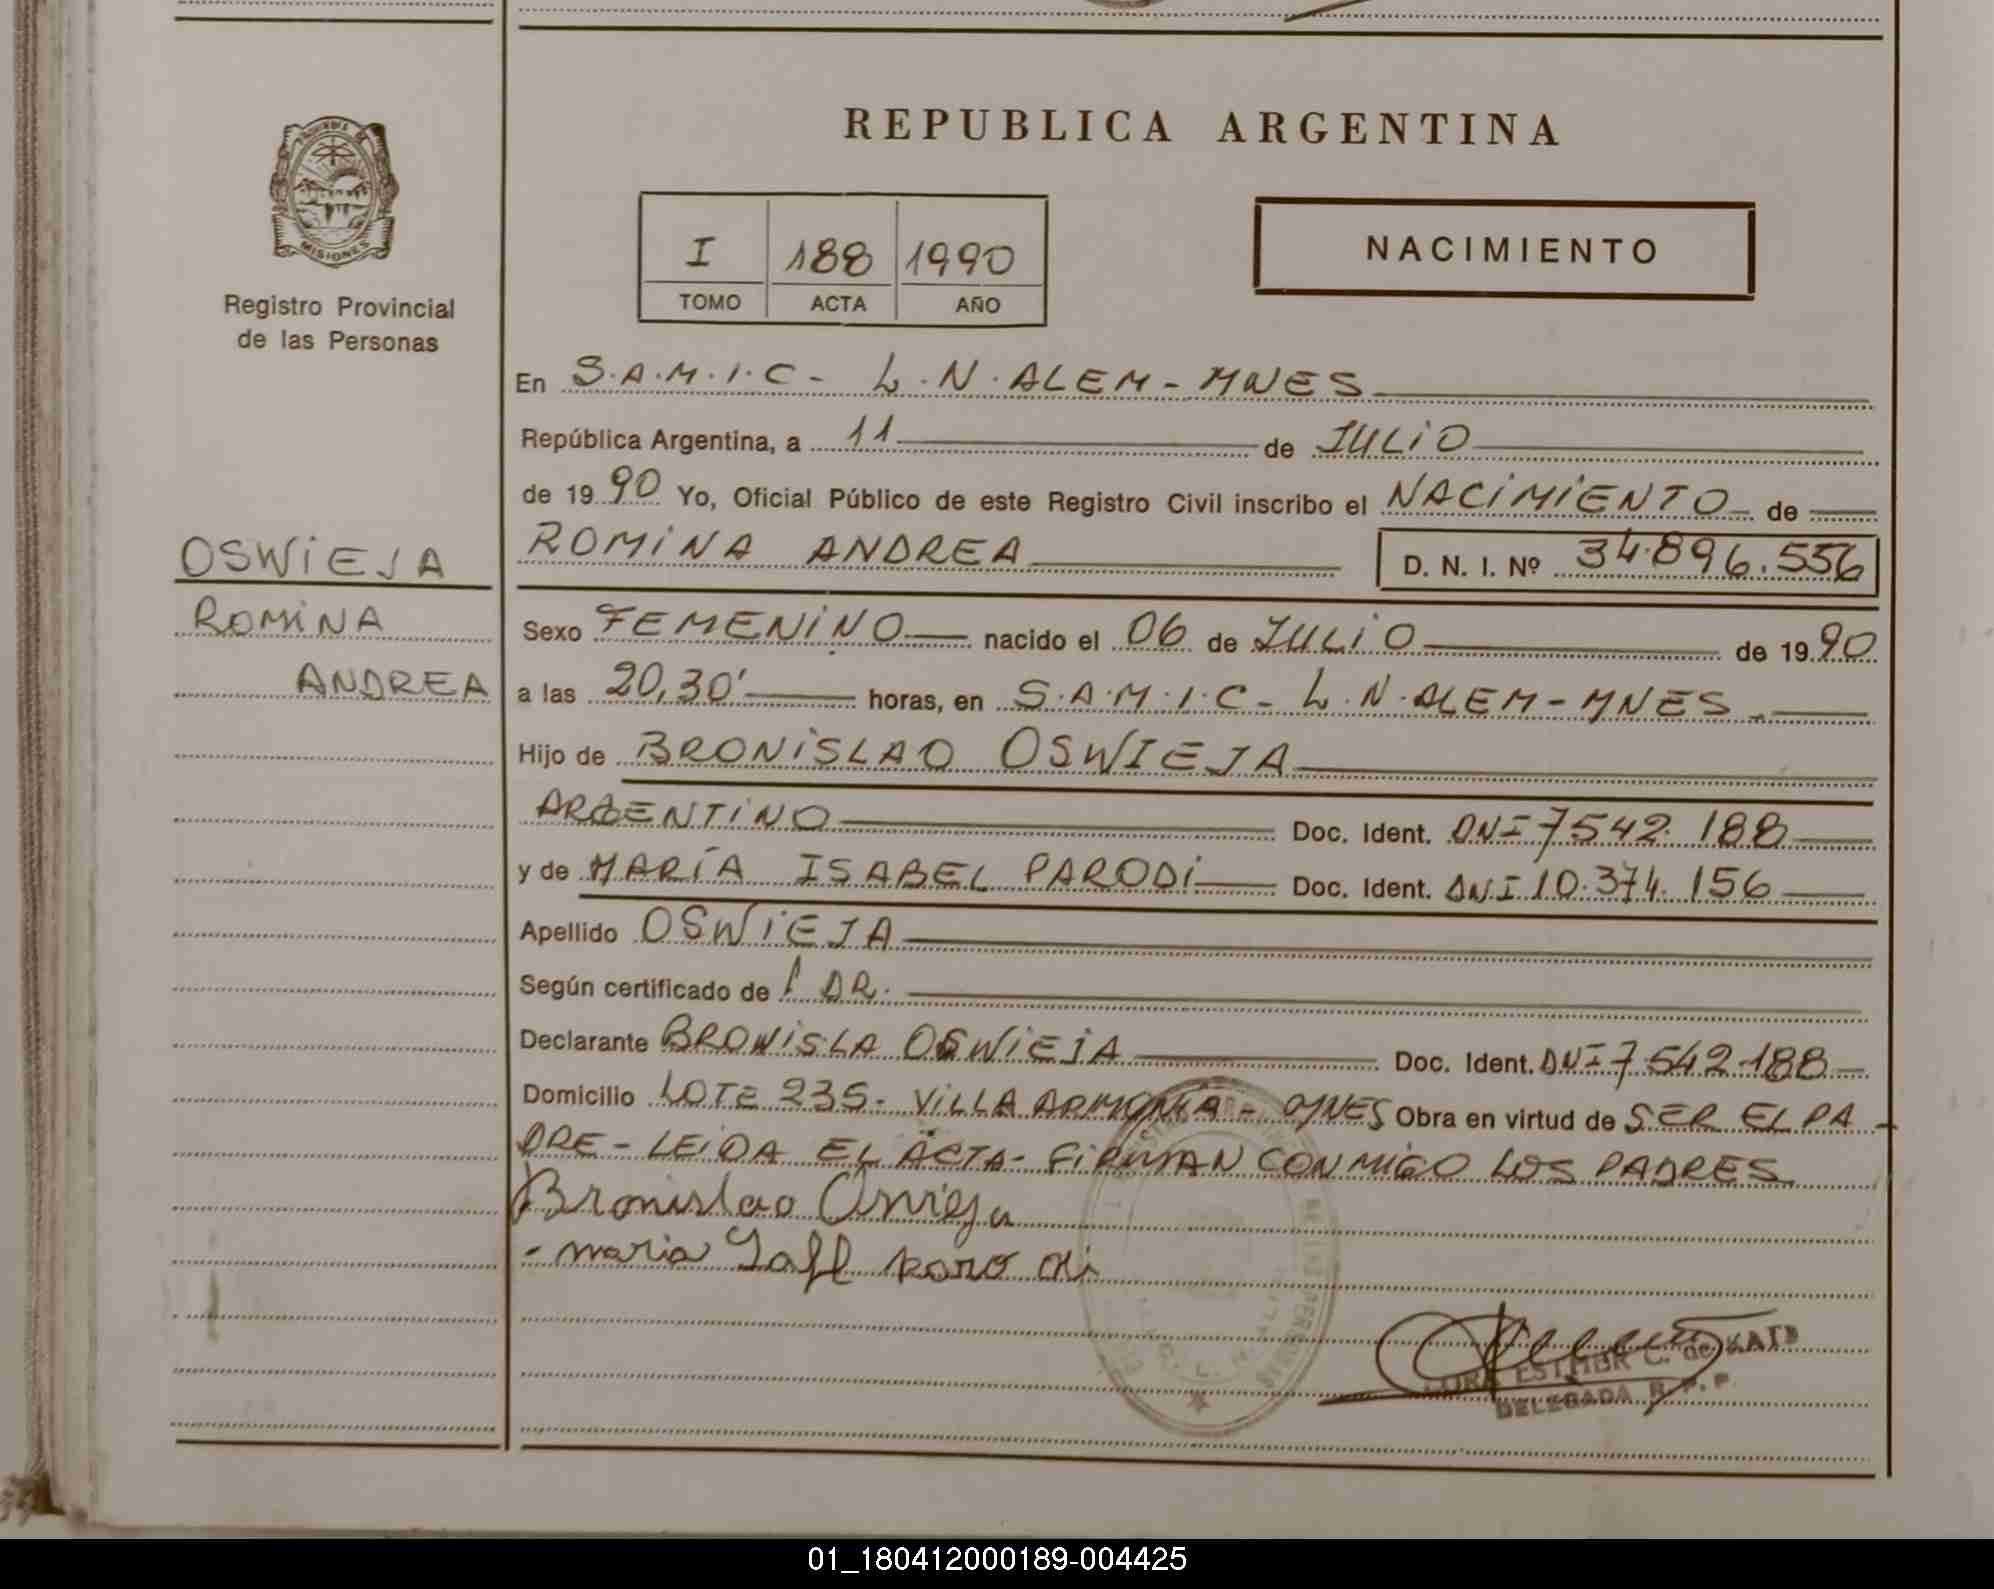 REPUBLICA ARGENTINA
PROVINCIA DE
MISIONES
Registro Provincial
de las Personas
I 188 1990
TOMO ACTA AÑO
NACIMIENTO
En S.A.M.I.C- L.N.ALEM-MNES
República Argentina, a 11 de JULIO
de 1990 Yo, Oficial Público de este Registro Civil inscribo el NACIMIENTO de
OSWIEJA
ROMINA ANDREA D. N. I. Nº 34.896.556
ROMINA
ANDREA
Sexo FEMENINO nacido el 06 de JULIO de 1990
a las 20,30' horas, en S.A.M.I.C- L.N.ALEM-MNES.
Hijo de BRONISLAO OSWIEJA
ARGENTINO Doc. Ident. DNI 7542.188
y de MARÍA ISABEL PARODI Doc. Ident. DNI 10.374.156
Apellido OSWIEJA
Según certificado de DR.
Declarante BRONISLA OSWIEJA Doc. Ident. DNI 7542188
Domicilio LOTE 235- VILLA ARMONIA - MNES Obra en virtud de SER EL PA-
DRE - LEIDA EL ACTA- FIRMAN CONMIGO LOS PADRES
Bronislao Oswieja
maria parodi
ESTHER C. de KATZ
DELEGADA R.P.P.
01_180412000189-004425